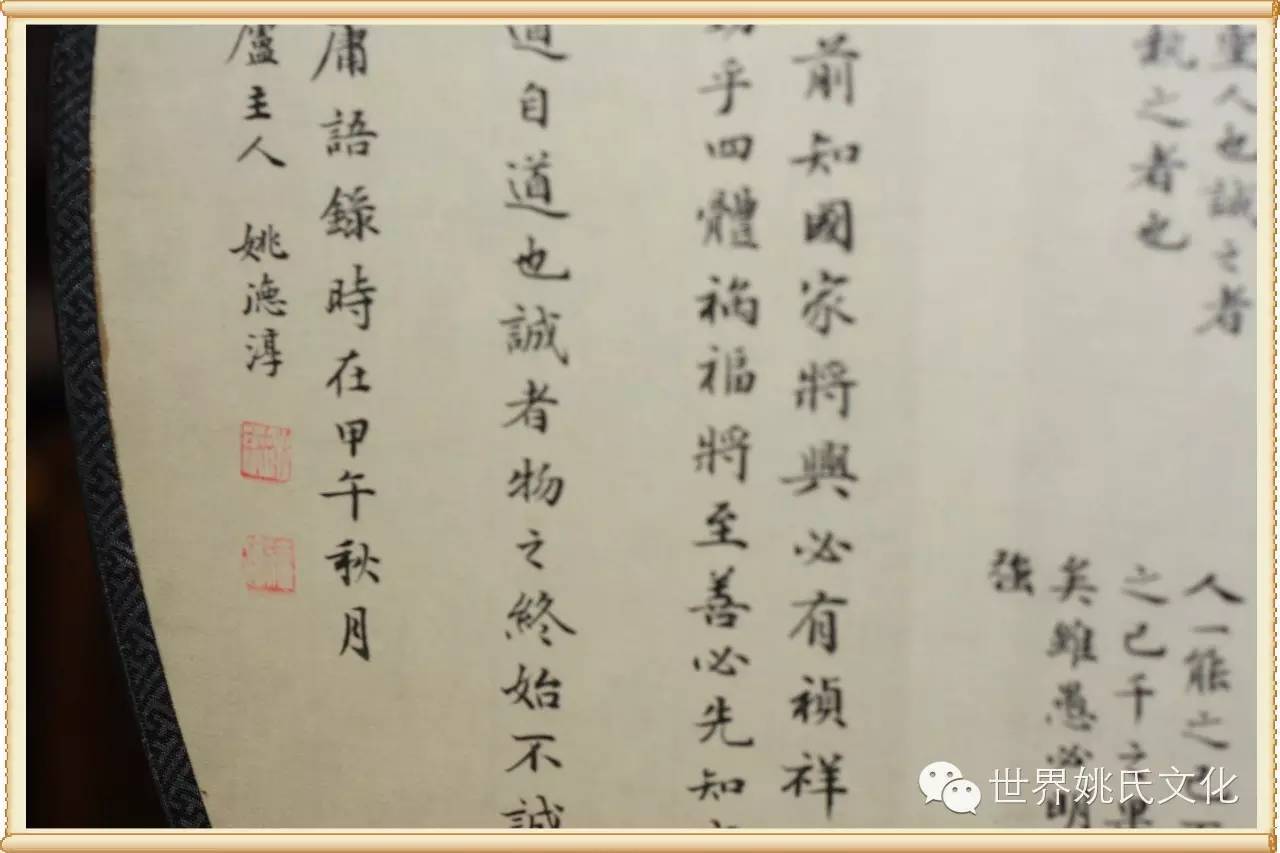 聖人也誠之者
執之者也
人一能之己百
之己千之果
矣雖愚必明
強
前知國家將興必有禎祥
動乎四體禍福將至善必先知
道自道也誠者物之終始不誠
庸語錄時在甲午秋月
廬主人 姚德淳
世界姚氏文化